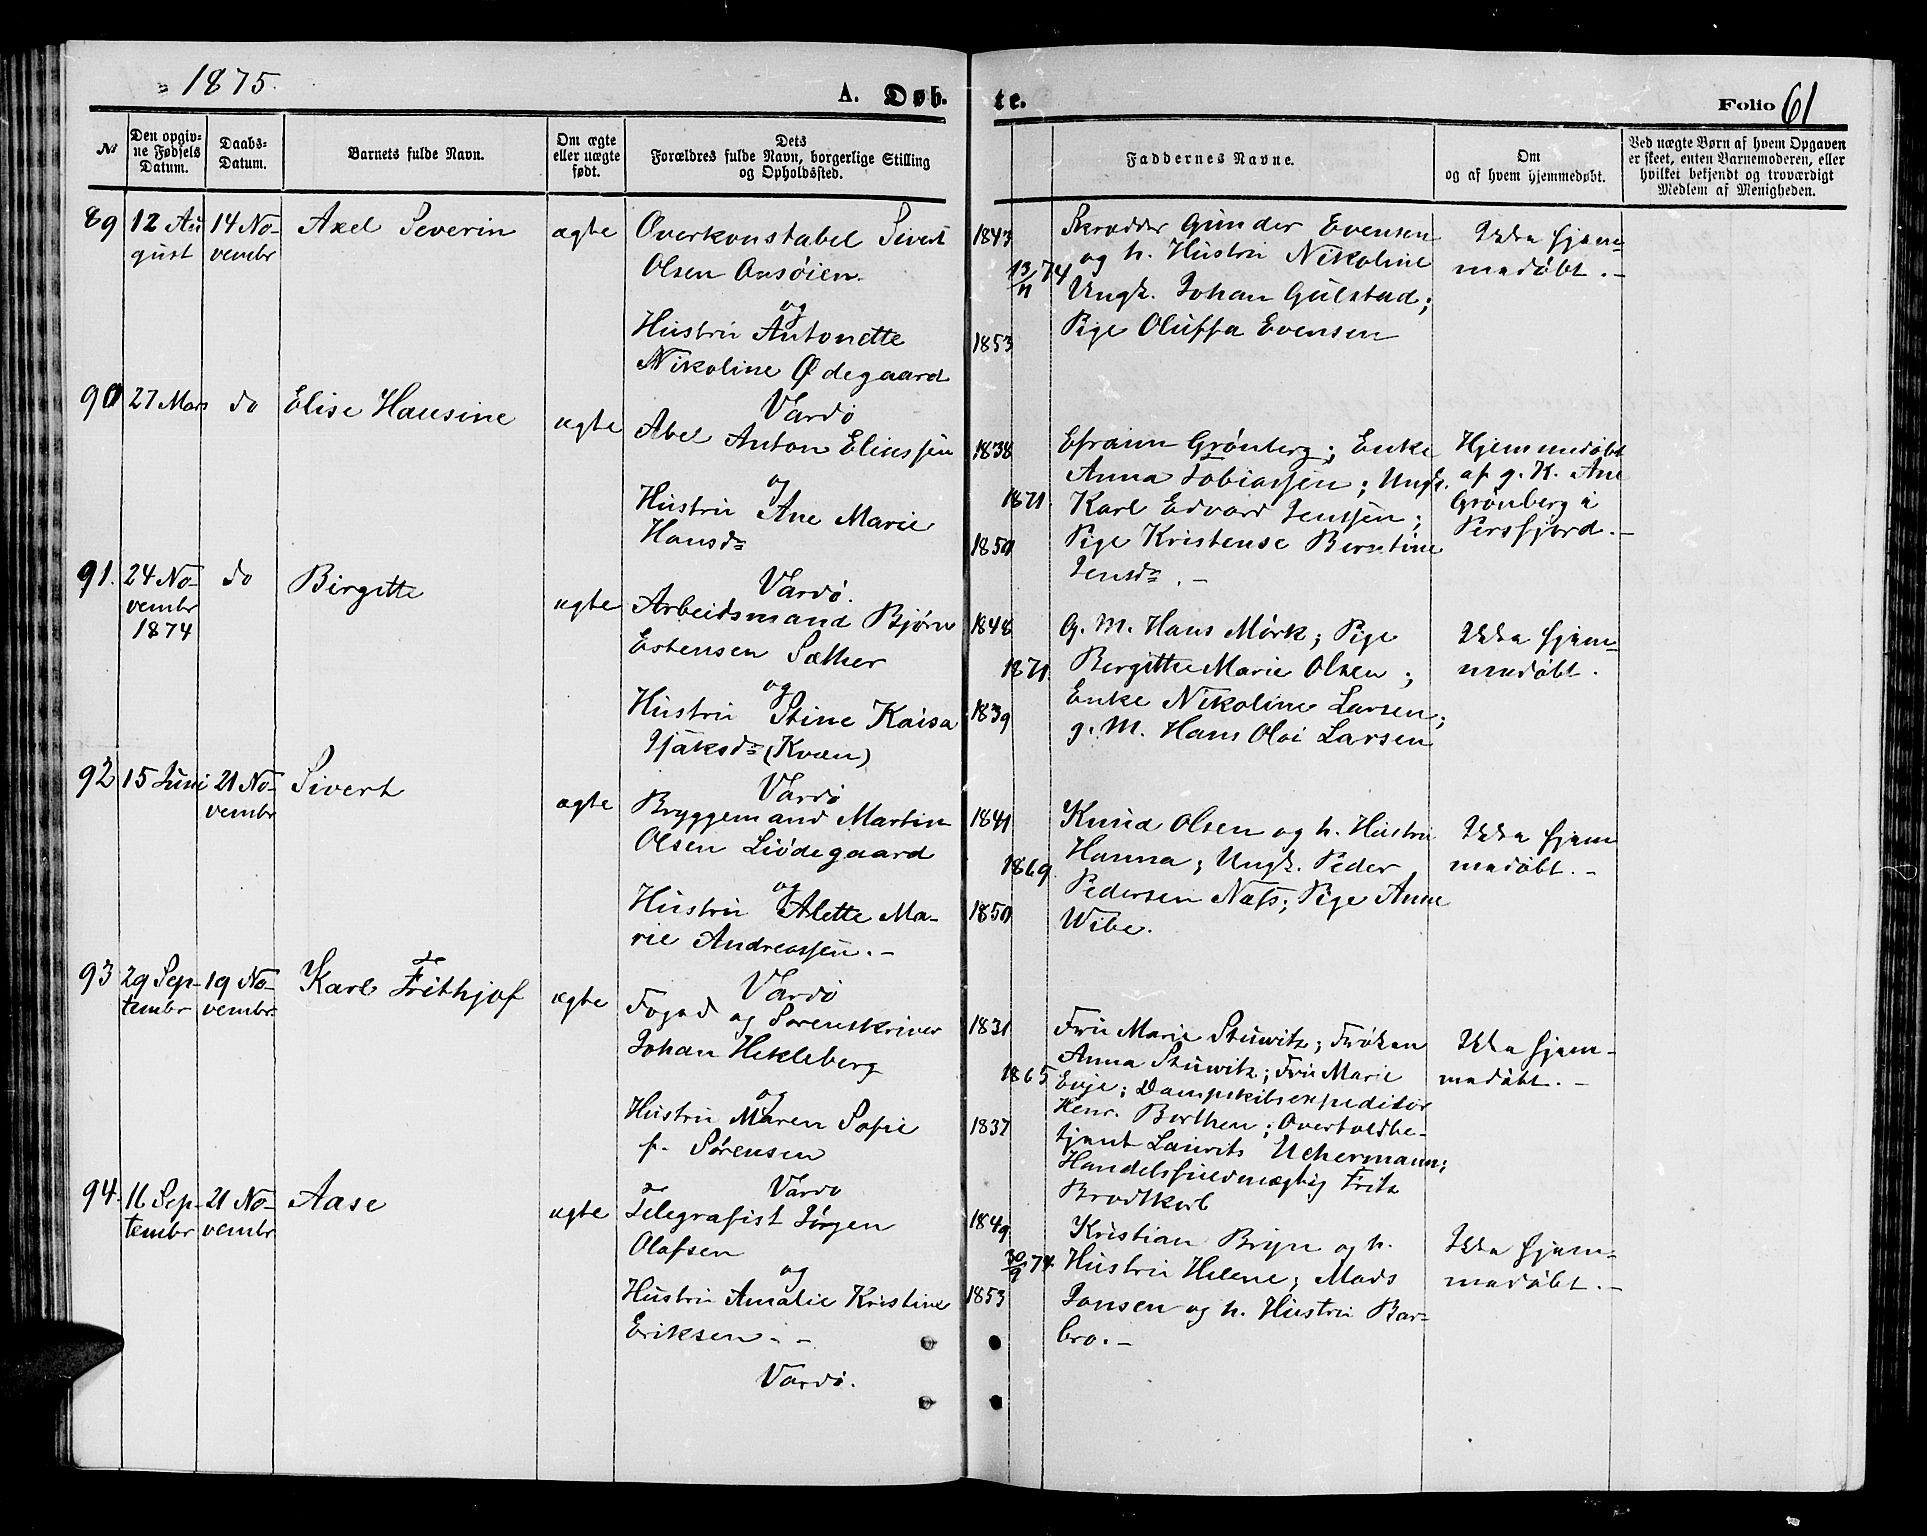 1875.
A. Døb-
te.
Folio 61
№
Den opgiv-
ne Fødsels
Datum.
Daabs-
Datum.
Barnets fulde Navn.
Om ægte
eller uægte
født.
Dets
Forældres fulde Navn, borgerlige Stilling
og Opholdssted.
Faddernes Navne.
Om
og af hvem hjemmedøbt.
Ved uægte Børn af hvem Opgaven
er skeet, enten Barnemoderen, eller
hvilket bekjendt og troværdigt
Medlem af Menigheden.
89
12 Au
gust
14 No-
vembr
Axel Severin
ægte
Overkonstabel Sivert
Olsen Onsøien
og
Hustru Antonette
Nikoline Ødegaard
Vardø
1843
13/11 74
1853
Skrædder Gunder Evensen
og h. Hustru Nikoline
Ungk. Johan Gulstad;
Pige Oluffa Evensen
Ikke hjem-
medøbt.-
90
27 Mars
do
Elise Hansine
ægte
Abel Anton Eliassen
og
Hustru Ane Marie
Hansdr
Vardø.
1838
1871
1850
Efraim Grønberg; Enke
Anna Tobiassen; Ungk.
Karl Edvard Jenssen;
Pige Kristense Berntine
Jensdr.-
Hjemmedøbt
af g. K. Ane
Grønberg i
Persfjord.-
91.
24 No-
vembr
1874
do
Birgitte
ægte
Arbeidsmand Bjørn
Estensen Sæther
og
Hustru Stine Kaisa
Isaksdr (Kvæn)
Vardø
1848
1871
1839
G. M. Hans Mørk; Pige
Bergitte Marie Olsen;
Enke Nikoline Larsen;
g. M. Hans Oloi Larsen
Ikke hjem-
medøbt.
92
15 Juni
21 No-
vembr
Sivert
ægte
Bryggemand Martin
Olsen Liødegaard
og
Hustru Alette Ma-
rie Andreassen.-
Vardø
1841
1869
1850
Knud Olsen og h. Hustru
Hanna; Ungk. Peder
Pedersen Næss; Pige Anne
Wibe.
Ikke hjem
medøbt.-
93
29 Sep-
tembr
19 No-
vembr
Karl Frithjof
ægte
Foged og Sorenskriver
Johan Hekleberg
og
Hustru Maren Sofie
f. Sørensen
Vardø
1831
1865
1837
Fru Marie Stuwitz; Frøken
Anna Stuwitz; Fru Marie
Evje; Dampskibsexpeditør
Henr. Borthen; Overtoldbe-
tjent Lauritz Uchermann;
Handelsfuldmægtig Fritz
Brodtkorb
Ikke hjem-
medøbt.-
94.
16 Sep-
tembr
21 No-
vembr
Aase
ægte
Telegrafist Jørgen
Olafsen
og
Hustru Amalie Kristine
Eriksen.-
Vardø.
1849
30/9 74
1853
Kristian Bryn og h.
Hustru Helene; Mads
Jonsen og h. Hustru Bar-
bro.-
Ikke hjem-
medøbt.-